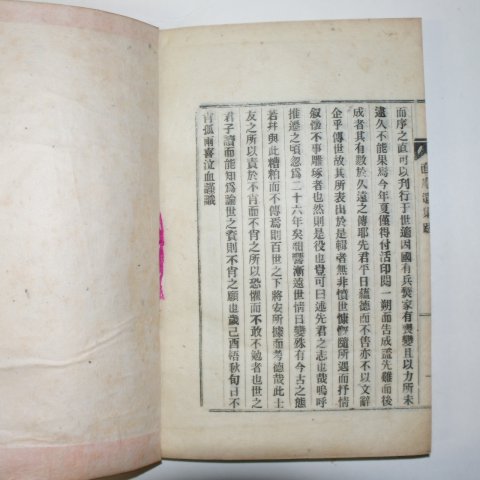 而序之直可以刊行于世適因國有兵燹家有喪變且以力所未
逮久不能果焉今年夏僅得付活印閱一朔而告成蓋先難而後
成者其有數於久遠之傳耶先君平日蘊德而不售亦不以文辭
企乎傳世故其所表出於是輯者無非憤世慷慨隨所遇而抒情
叙懷不事雕琢者也然則是役也豈可曰述先君之志也哉嗚呼
推遷之頃忽焉二十六年矣翹謦漸遠世情日變殊有今古之態
若并與此糟粕而不傳焉則百世之下將安所據而考德哉此士
友之所以責於不肖而不肖之所以恐懼而不敢不勉者也世之
君子讀而能知爲論世之資則不肖之願也歲己酉梧秋旬日不
肖孤雨喜泣血謹識
遺集跋